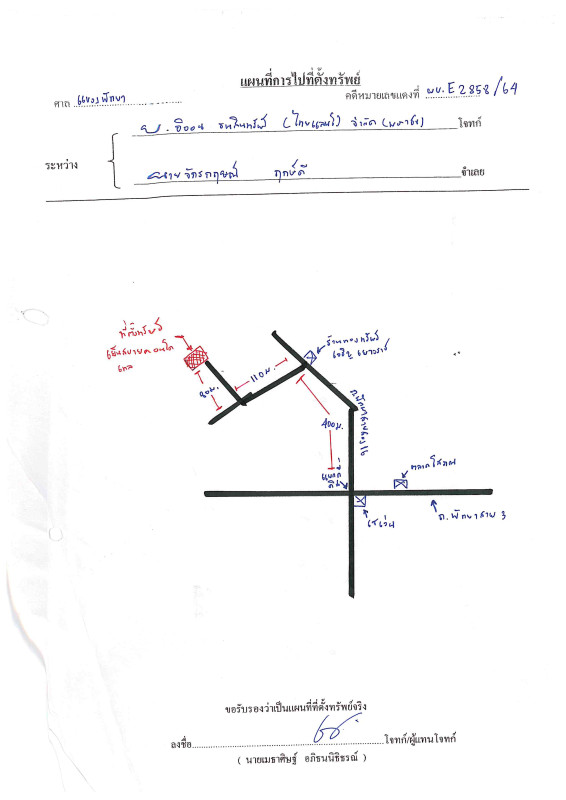 แผนที่การไปที่ตั้งทรัพย์
ศาล แขวงพัทยา คดีหมายเลขแดงที่ ผบ.E2858/64
บ. อิออน ธนสินทรัพย์ (ไทยแลนด์) จำกัด (มหาชน) โจทก์
ระหว่าง
นายจักรกฤษณ์ ฤกษ์ดี จำเลย
ที่ตั้งทรัพย์
ร้านทองทรัพย์
เจริญ เยาวราช
เย็นสบายคอนโด
110 ม.
90 ม.
400 ม.
ตลาดโสภณ
เซเว่น
ถ.พัทยาสาย 3
ขอรับรองว่าเป็นแผนที่ที่ตั้งทรัพย์จริง
ลงชื่อ โจทก์/ผู้แทนโจทก์
( นายเมธาศิษฐ์ อภิธนนิธิธรณ์ )